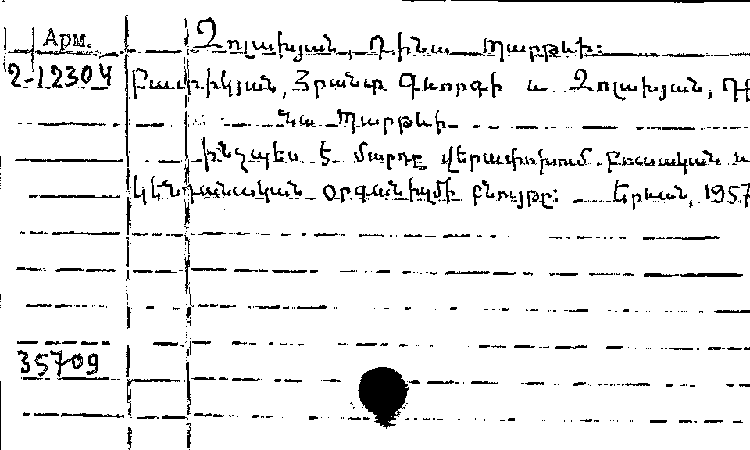 Арм.
Չոլախյան, Դինա Մարթեի։
2-12304
Բատիկյան, Հրանտ Գևորգի և Չոլախյան, Դի
նա Մարթեի
Ինչպես է մարդը վերափոխում բուսական և
կենդանական օրգանիզմի բնույթը։ Երևան, 1957
35709